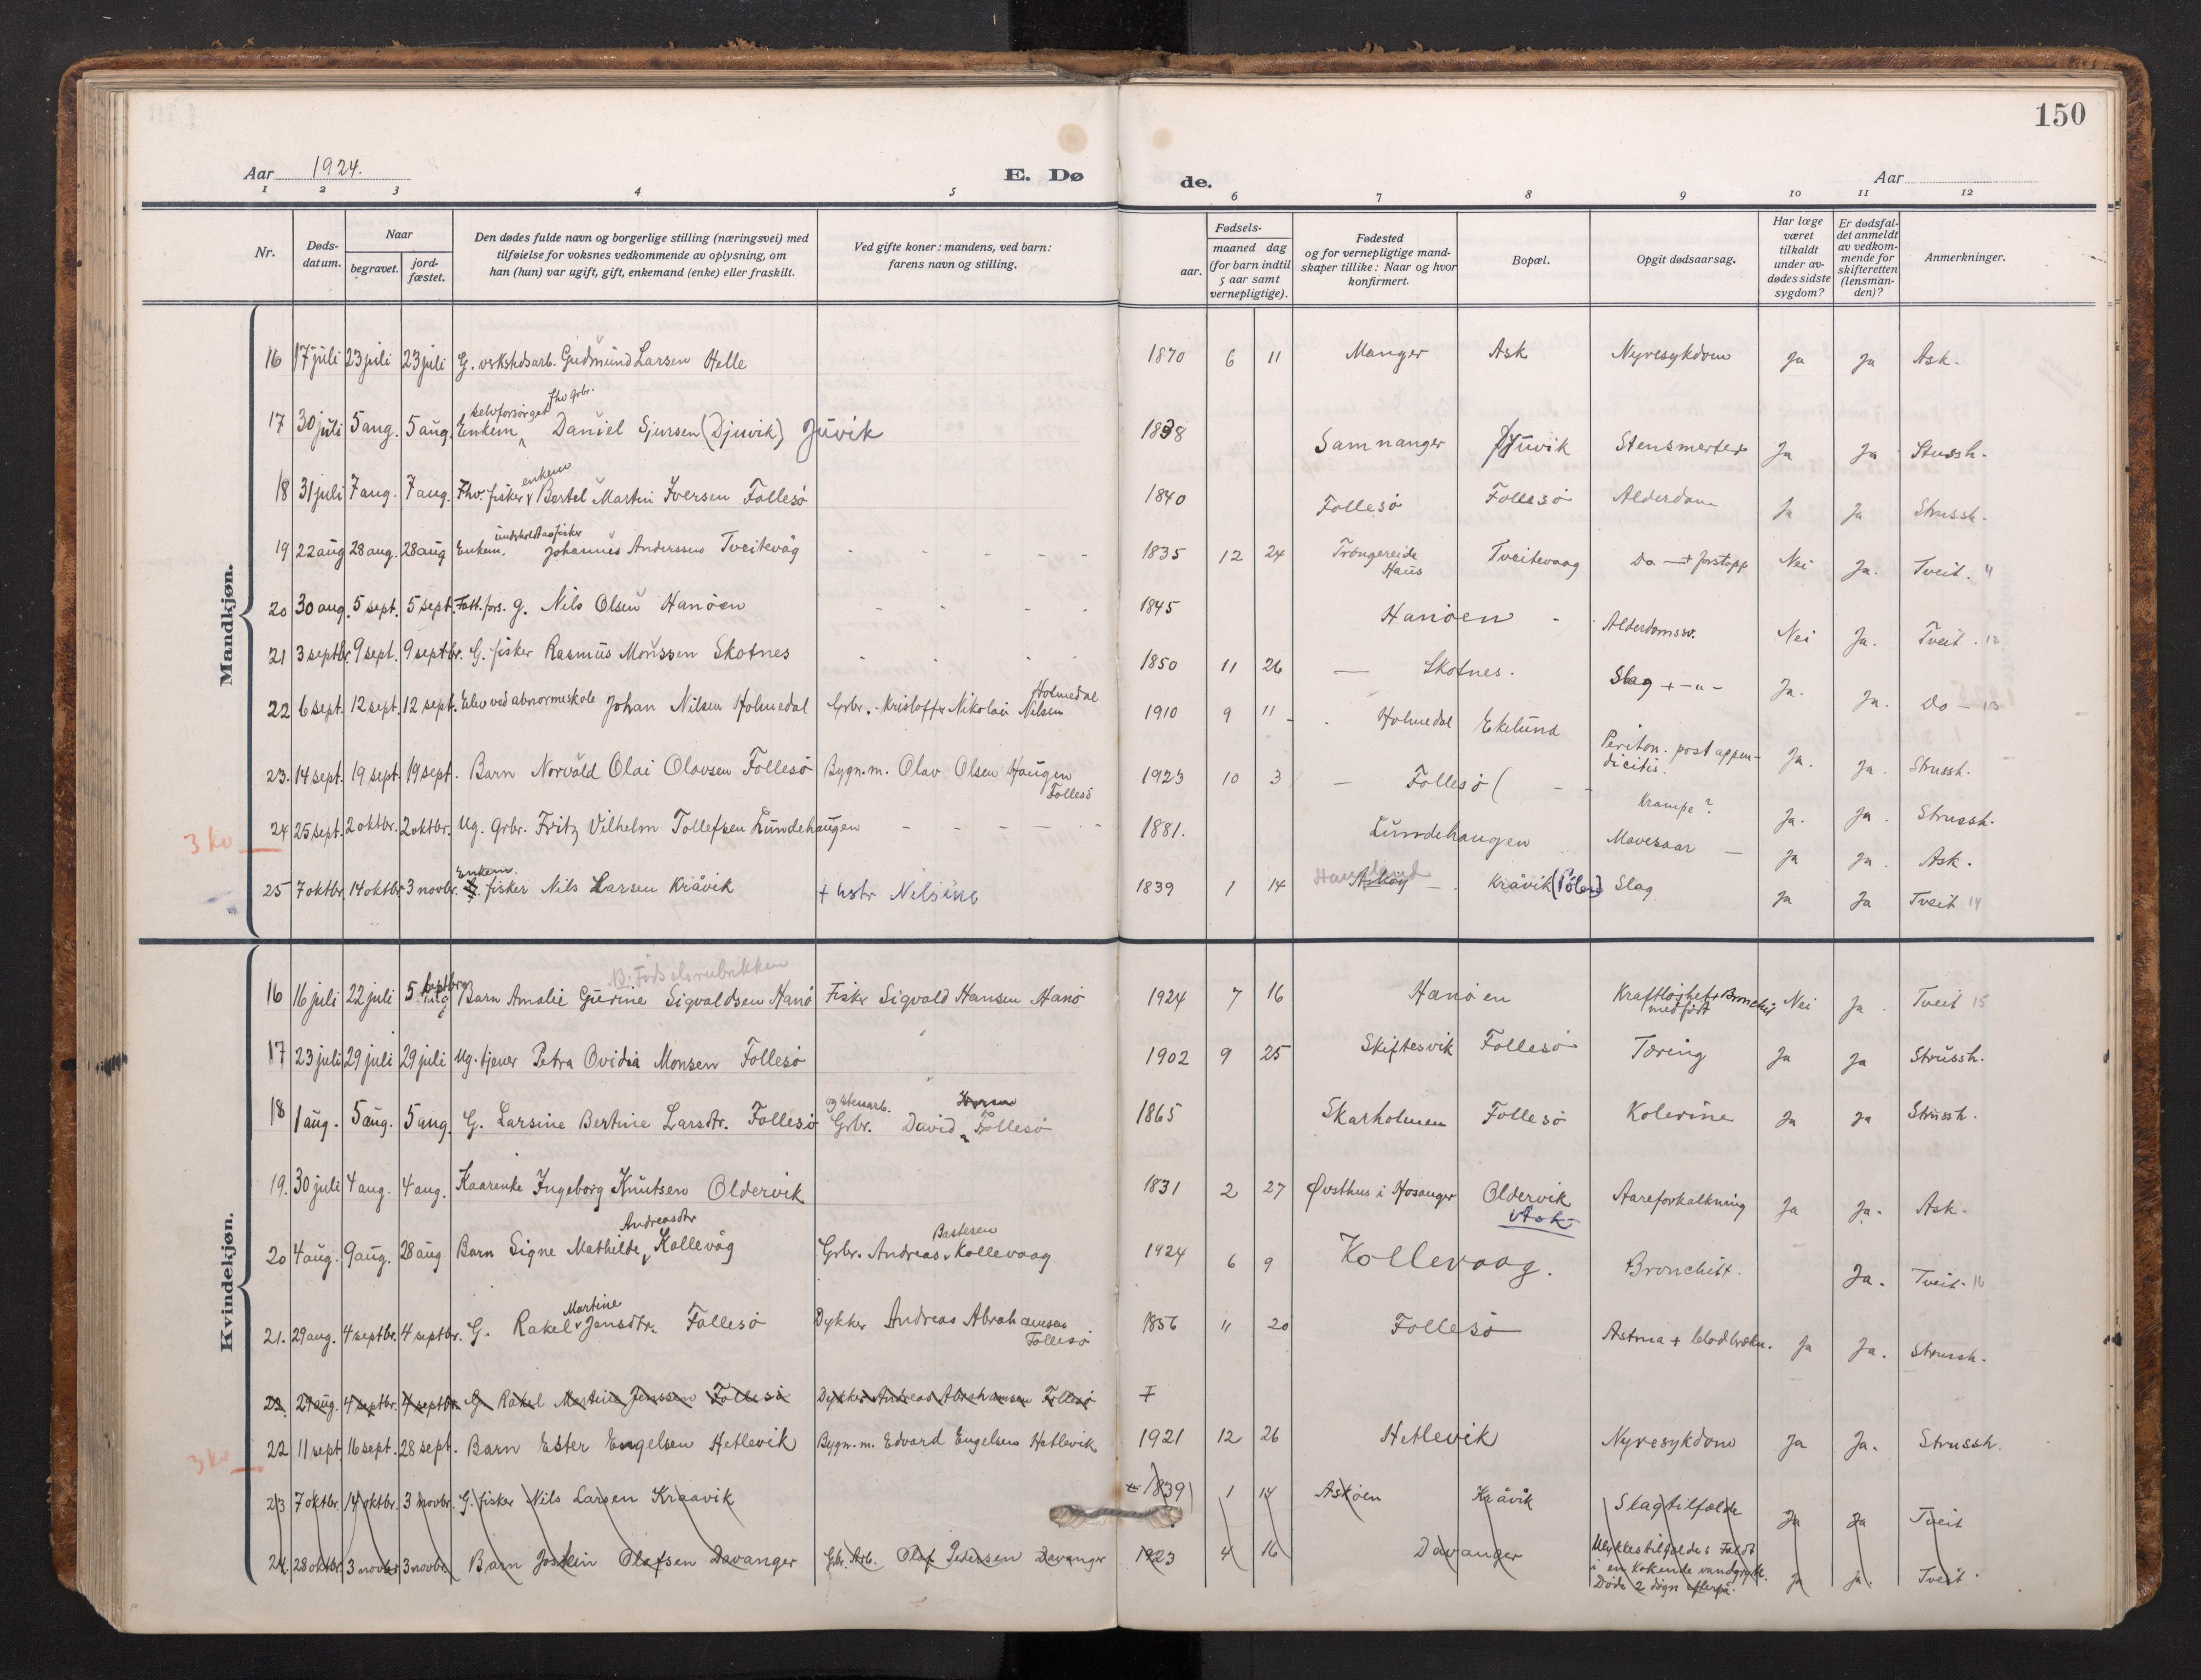 150
Aar 1924.
E. Døde.
Aar
1 2 3 4 5 6 7 8 9 10 11 12
Nr.
Døds-datum.
Naar
begravet.
jord-fæstet.
Den dødes fulde navn og borgerlige stilling (næringsvei) med
tilføielse for voksnes vedkommende av oplysning, om
han (hun) var ugift, gift, enkemand (enke) eller fraskilt.
Ved gifte koner: mandens, ved barn:
farens navn og stilling.
Fødsels-
aar.
maaned dag
(for barn indtil
5 aar samt
vernepligtige).
Fødested
og for vernepligtige mand-
skaper tillike: Naar og hvor
konfirmert.
Bopæl.
Opgit dødsaarsag.
Har læge
været
tilkaldt
under av-
dødes sidste
sygdom?
Er dødsfal-
det anmeldt
av vedkom-
mende for
skifteretten
(lensman-
den)?
Anmerkninger.
Mandkjøn.
16 17 juli 23 juli 23 juli G. verkstedsarb. Gudmund Larsen Helle 1870 6 11 Manger Ask Nyresykdom Ja Ja Ask.
selvforsørget fhv grbr.
17 30 juli 5 aug. 5 aug. Enkem. Daniel Sjursen (Djuvik) Juvik 1838 Samnanger Juvik Stensmerter Ja Ja Strussh.
enkem
18 31 juli 7 aug. 7 aug. Fhv. fisker Bertel Martin Iversen Follesø 1840 Follesø Follesø Alderdom Ja Ja Strussh.
underholdt av fisker
19 22 aug 28 aug. 28 aug Enkem. Johannes Anderssen Tveitevåg - - - - - 1835 12 24 Trængereide Haus Tveitevaag Do + forstopp Nei Ja. Tveit. 4
20 30 aug. 5 sept. 5 sept. Fatt. fors. g. Nils Olsen Hanøen - - - - 1845 Hanøen - Alderdomssv. Nei Ja. Tveit. 12
21 3 septbr. 9 sept. 9 septbr. G. fisker Rasmus Monssen Skotnes - - - - 1850 11 26 — Skotnes. Slag + - " - Ja. Ja. Do - 13
22 6 sept. 12 sept. 12 sept. Elev ved abnormeskole Johan Nilsen Holmedal Grbr. Kristoffer Nikolai Nilsen Holmedal 1910 9 11 - Holmedal Ekelund Periton. post appen-
dicitis. Ja. Ja. Strussh.
23. 14 sept. 19 sept. 19 sept. Barn Norvald Olai Olavsen Follesø Bygn.m. Olav Olsen Haugen Follesø 1923 10 3 — Follesø ( - - Krampe? Ja. Ja. Strussh.
3 kv
24 25 sept. 2 oktbr. 2 oktbr. Ug. grbr. Fritz Vilhelm Tollefsen Lundehaugen - - - - - 1881. Lundehaugen Mavesaar — Ja Ja. Ask.
Enkem.
25 7 oktbr. 14 oktbr 3 novbr. G. fisker Nils Larsen Kråvik + hstr Nilsine 1839 1 14 Askøy Kråvik (Pólen) Slag Ja Ja Tveit 14
Kvindekjøn.
B. Fødselsrubrikken
16 16 juli 22 juli 5 aug septbr. Barn Amalie Gurine Sigvaldsen Hanø Fisker Sigvald Hansen Hanø 1924 7 16 Hanøen Kraftløshet + Bronchit
medfødt Nei Ja. Tveit 15
17 23 juli 29 juli 29 juli Ug. tjener Petra Ovidia Monsen Follesø 1902 9 25 Skiftesvik Follesø Tæring Ja Ja Strussh.
og stenarb.
18 1 aug. 5 aug. 5 aug. G. Larsine Bertine Larsdtr. Follesø Grbr. David Follesø 1865 Skarholmen Follesø Kolerine Ja Ja Strussh.
19. 30 juli 4 aug. 4 aug. Kaarenke Ingeborg Knutsen Oldervik 1831 2 27 Øvsthus i Hosanger Oldervik Aareforkalkning Ja Ja. Ask.
Ask
Andreasdtr Bertesen
20 4 aug. 9 aug. 28 aug. Barn Signe Mathilde Kollevåg Grbr. Andreas Kollevaag 1924 6 9 Kollevaag. Bronchitt. Ja. Tveit. 16
Martine
21. 29 aug. 4 septbr. 4 septbr. G. Rakel Jensdtr. Follesø Dykker Andreas Abrahamsen Follesø 1856 11 20 Follesø Astma + blodbrækn. Ja Ja. Strussh.
22. 29 aug. 4 septbr. 4 septbr. G Rakel Martine Jenssen Follesø Dykker Andreas Abrahamsen Follesø
22 11 sept 16 sept. 28 sept. Barn Ester Engelsen Hetlevik Bygn.m. Edvard Engelsen Hetlevik 1921 12 26 Hetlevik Nyresykdom Ja Ja. Strussh.
3 kv
23 7 oktbr. 14 oktbr. 3 novbr. G. fisker Nils Larsen Kraavik 1839 1 14 Askøen Kråvik Slagtilfælde Ja Ja Tveit
24. 28 oktbr. 3 novbr 3 novbr. Barn Jostein Olafsen Davanger Gbr. Arb. Olaf Pedersen Davanger 1923 4 16 Davanger Ulykkestilfælde: Faldt
i en kokende vandgryte.
Døde 2 døgn efterpå. Ja ja. Tveit